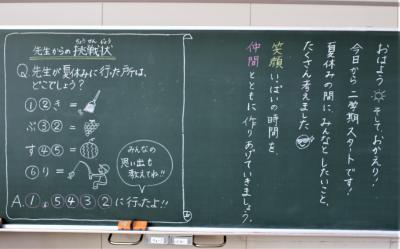 おはよう そして、おかえり!
今日から 二学期スタートです!
夏休みの間に、みんなとしたいこと、
たくさん考えました
笑顔いっぱいの時間を、
仲間とともに 作りあげていきましょう。
先生からの挑戦状
ちょうせんじょう
Q.先生が夏休みに行った所は、
どこでしょう?
①②き =
ぶ③② =
す④⑤ =
⑥り =
みんなの
思い出も
教えてね!!
A.①。⑤④③②に行ったよ!!